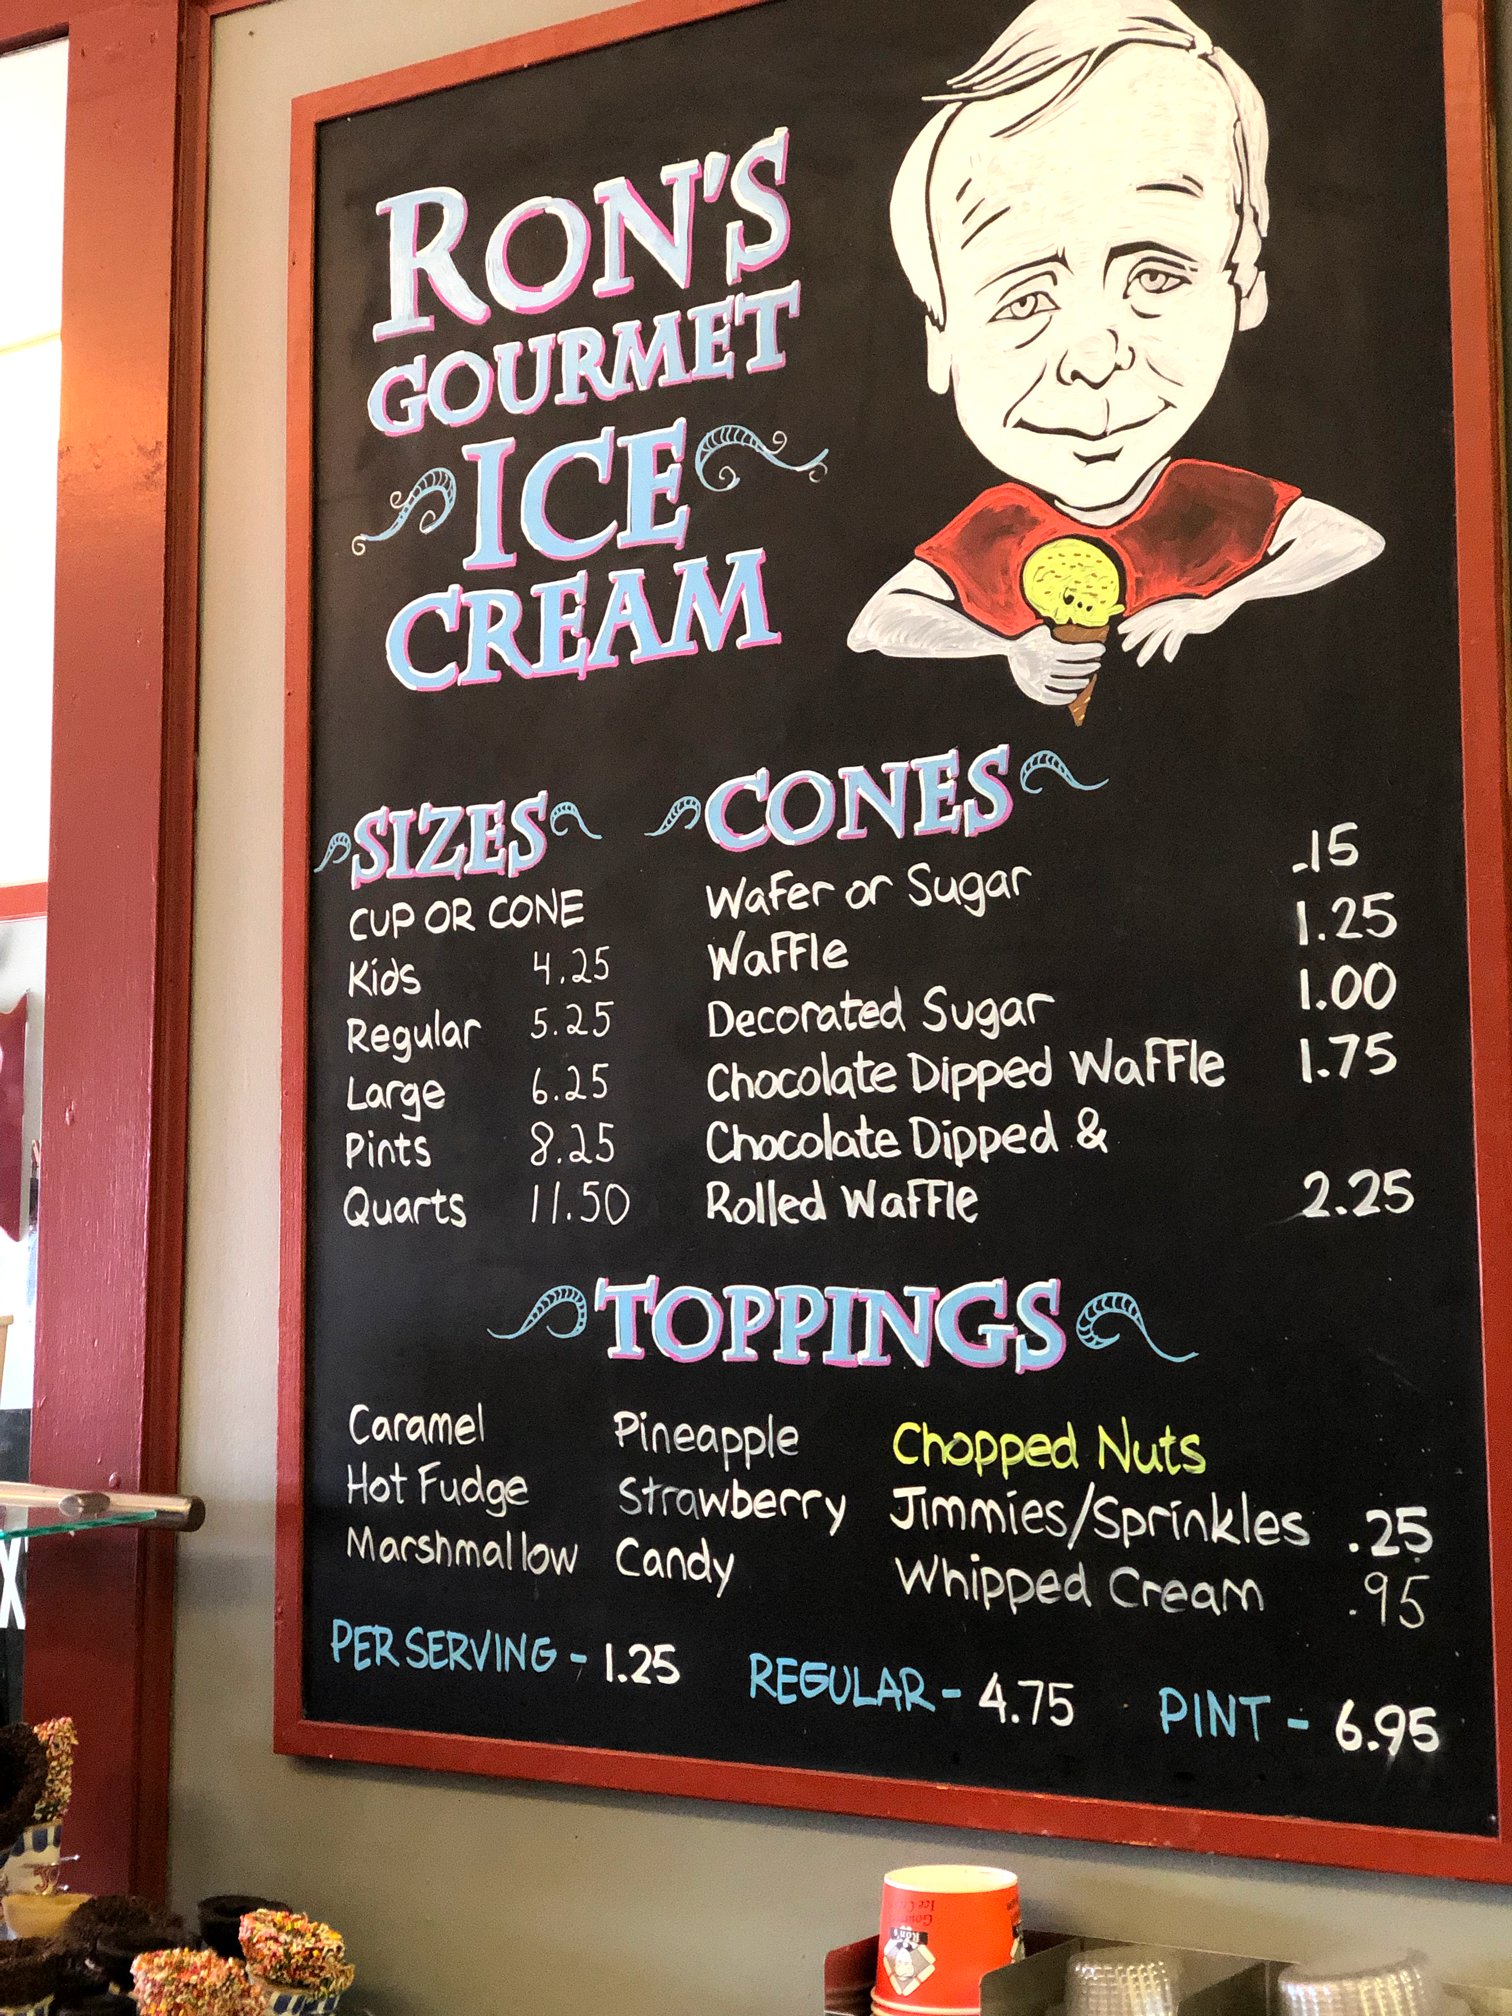 RON'S
GOURMET
ICE
CREAM
SIZES
CUP OR CONE
Kids 4.25
Regular 5.25
Large 6.25
Pints 8.25
Quarts 11.50
CONES
Wafer or Sugar .15
Waffle 1.25
Decorated Sugar 1.00
Chocolate Dipped Waffle 1.75
Chocolate Dipped &
Rolled Waffle 2.25
TOPPINGS
Caramel Pineapple Chopped Nuts
Hot Fudge Strawberry Jimmies/Sprinkles .25
Marshmallow Candy Whipped Cream .95
PER SERVING - 1.25 REGULAR - 4.75 PINT - 6.95
X
Ron's
Gourmet
Ice